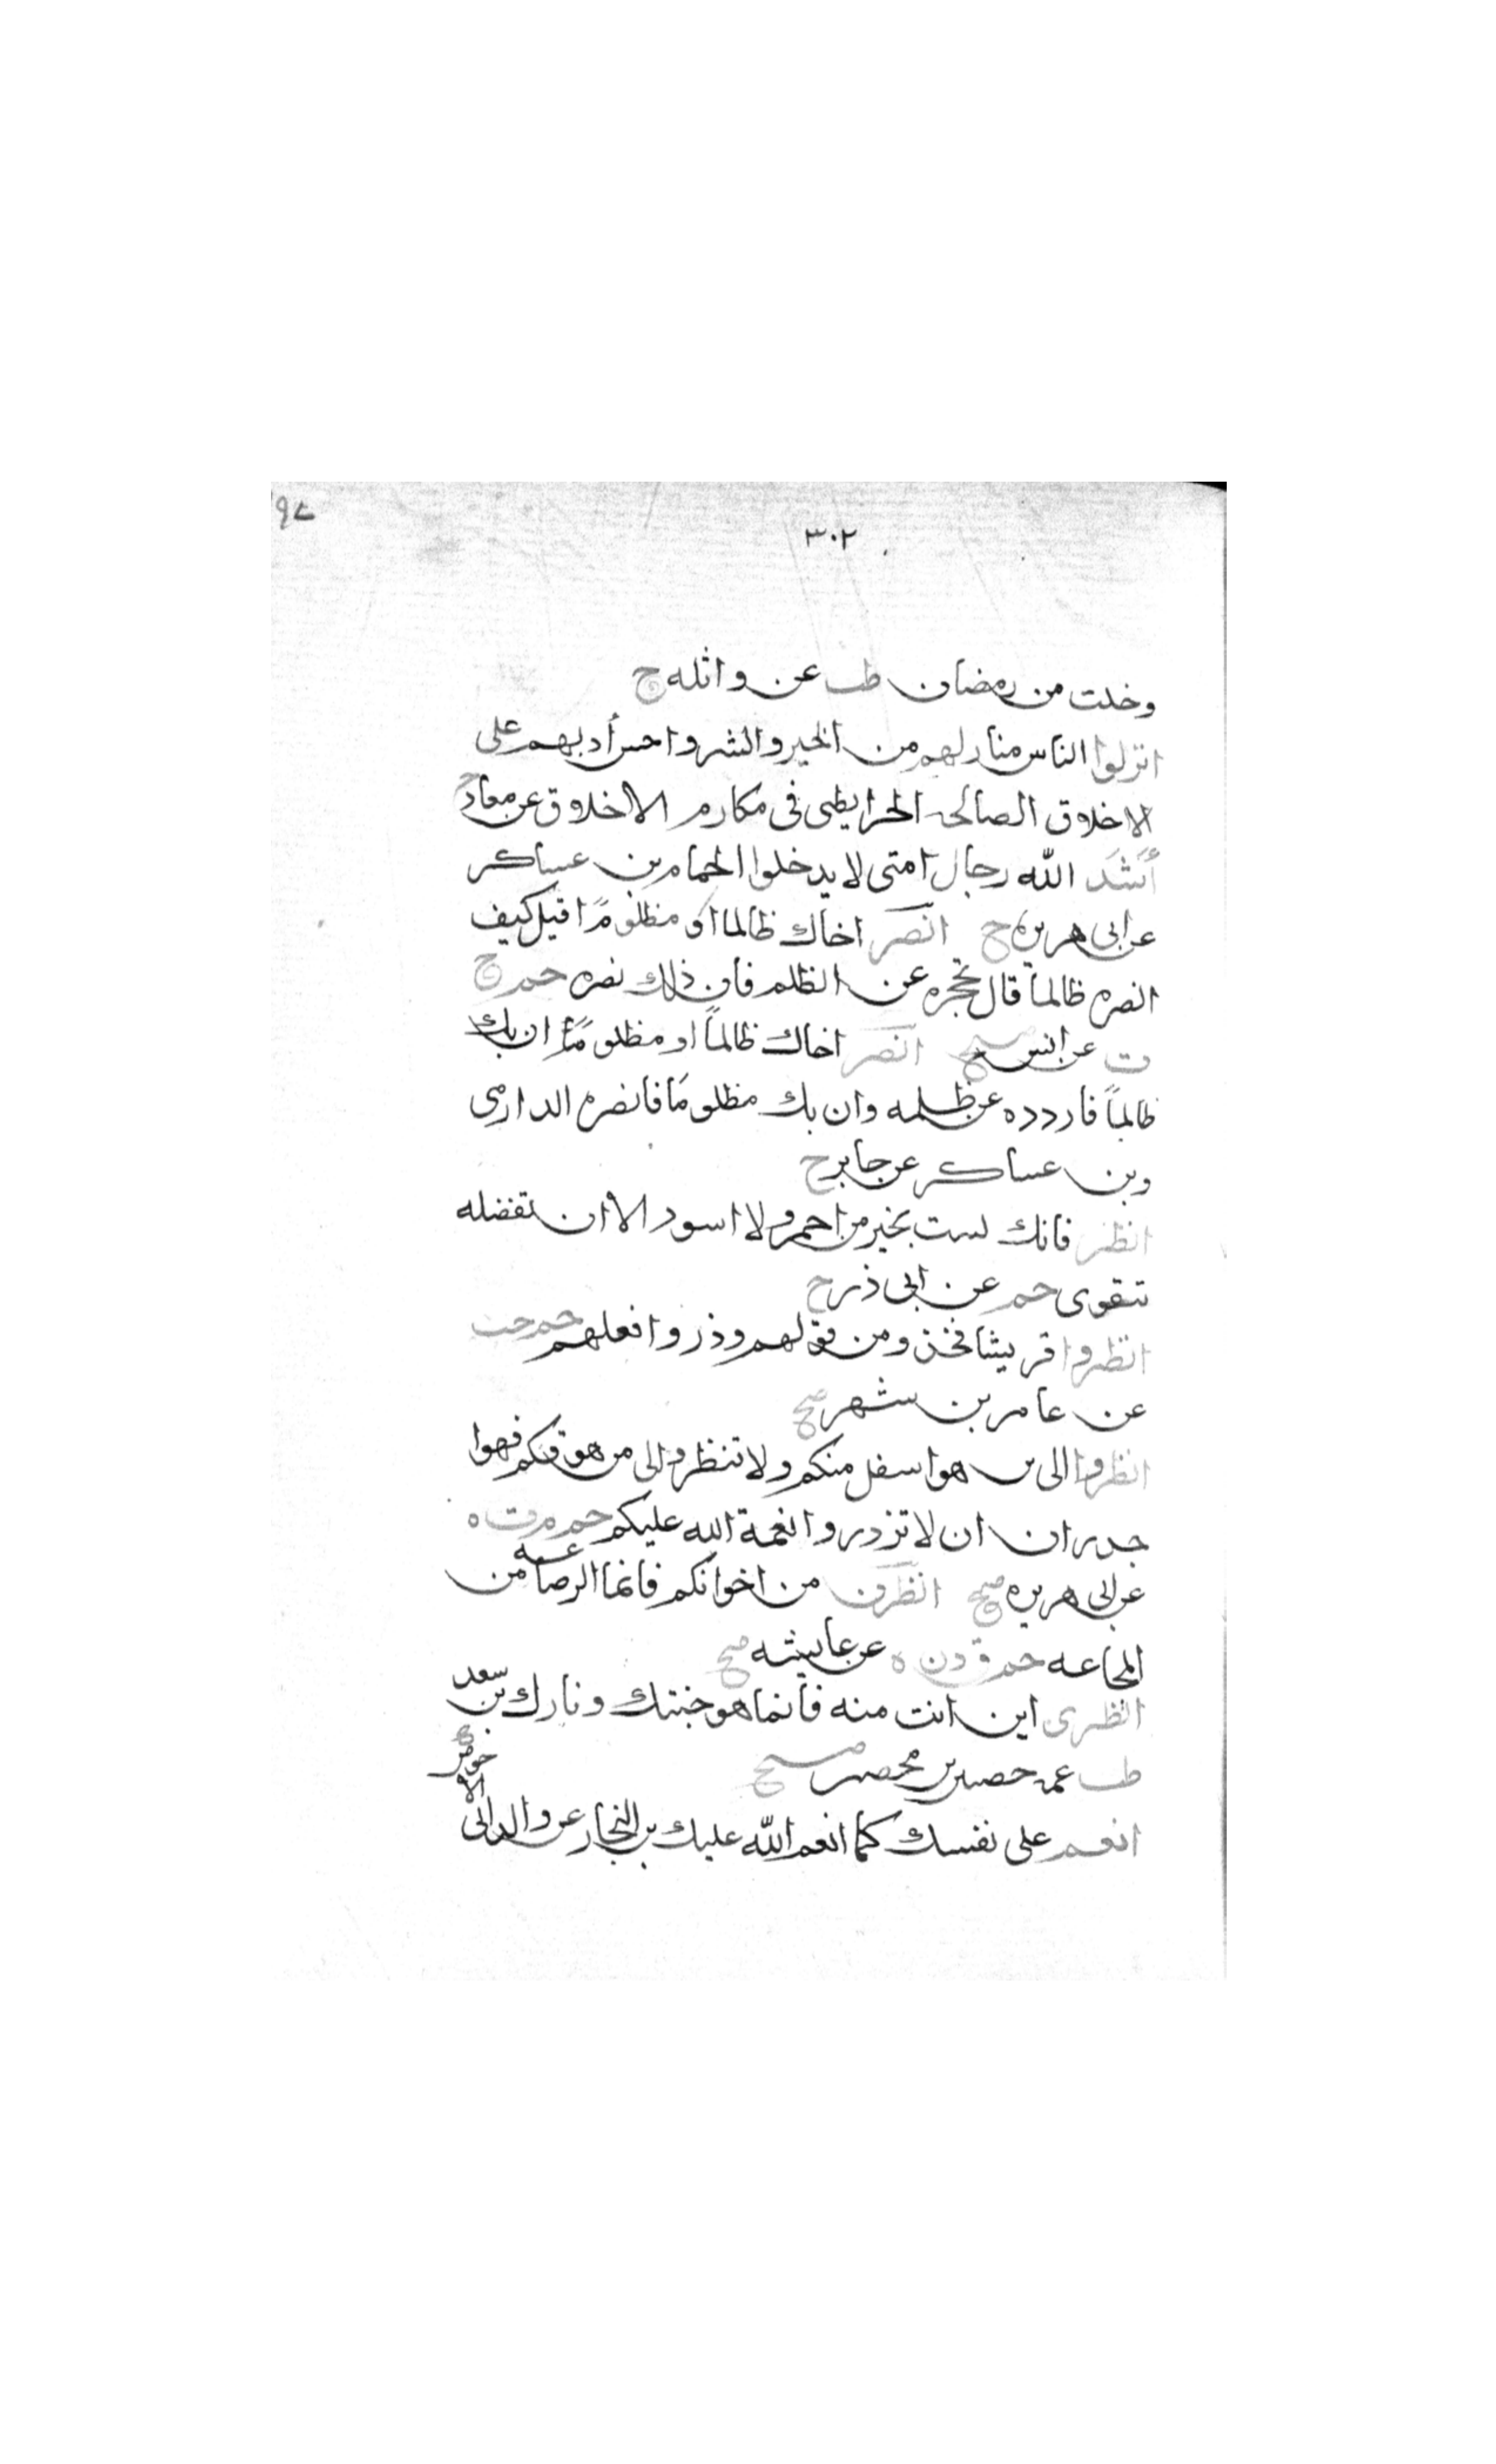 ٩٨
٣٠٢
وخلت من رمضان طب عن واثله ح
انزلوا الناس منازلهم من الخير والشر واحسن أدبهم على
الاخلاق الصالحه الخرايطى فى مكارم الاخلاق عن معاذ ح
أنشد الله رجال امتى لا يدخلوا الحمام بن عساكر
عن ابى هريرة ح انصر اخاك ظالما او مظلومًا قيل كيف
انصره ظالماً قال تحجزه عن الظلم فان ذلك نصره حم خ
ت عن انس صح انصر اخاك ظالماً او مظلومًا ان يك
ظالماً فاردده عن ظلمه وان يك مظلومًا فانصره الدارمى
وبن عساكر عن جابر ح
انظر فانك لست بخير من احمر ولا اسود الا ان تفضله
بتقوى حم عن ابى ذر ح
انظروا قريشا فخذو من قولهم وذروا فعلهم حم حب
عن عامر بن شهر صح
انظروا الى من هو اسفل منكم ولا تنظروا الى من هو فوقكم فهوا
جدران ان لا تزدروا نعمة الله عليكم حم م ت ه
عن ابى هريره صح انظرن من اخوانكم فانما الرضاعه من
المجاعه حم ق د ن ه عن عايشه صح
انظرى اين انت منه فانما هو جنتك ونارك بن سعد
طب عن عمة حصين بن محصن صح
انعم على نفسك كما انعم الله عليك بن النجار عن والد ابى الاحوص ح